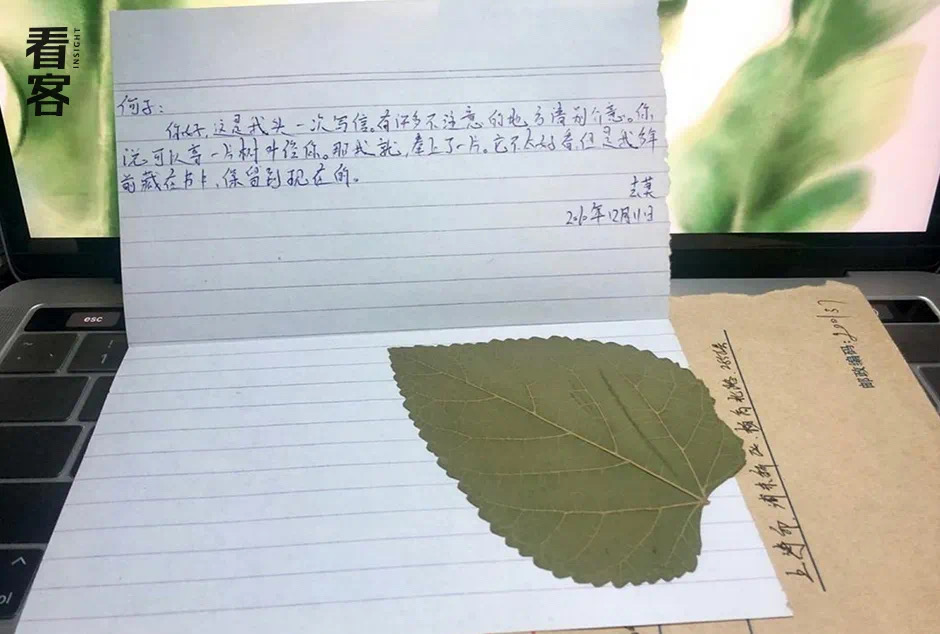 看客
INSIGHT
何子:
你好,这是我头一次写信。有许多不注意的地方请别介意。你,
说可以寄一片树叶给你。那我就,奉上了一片。它不太好看,但是我多年
前藏在书卡,保留到现在的。
2020年12月11日
esc
1
邮政编码:200137
上海市,浦东新区,杨高北路